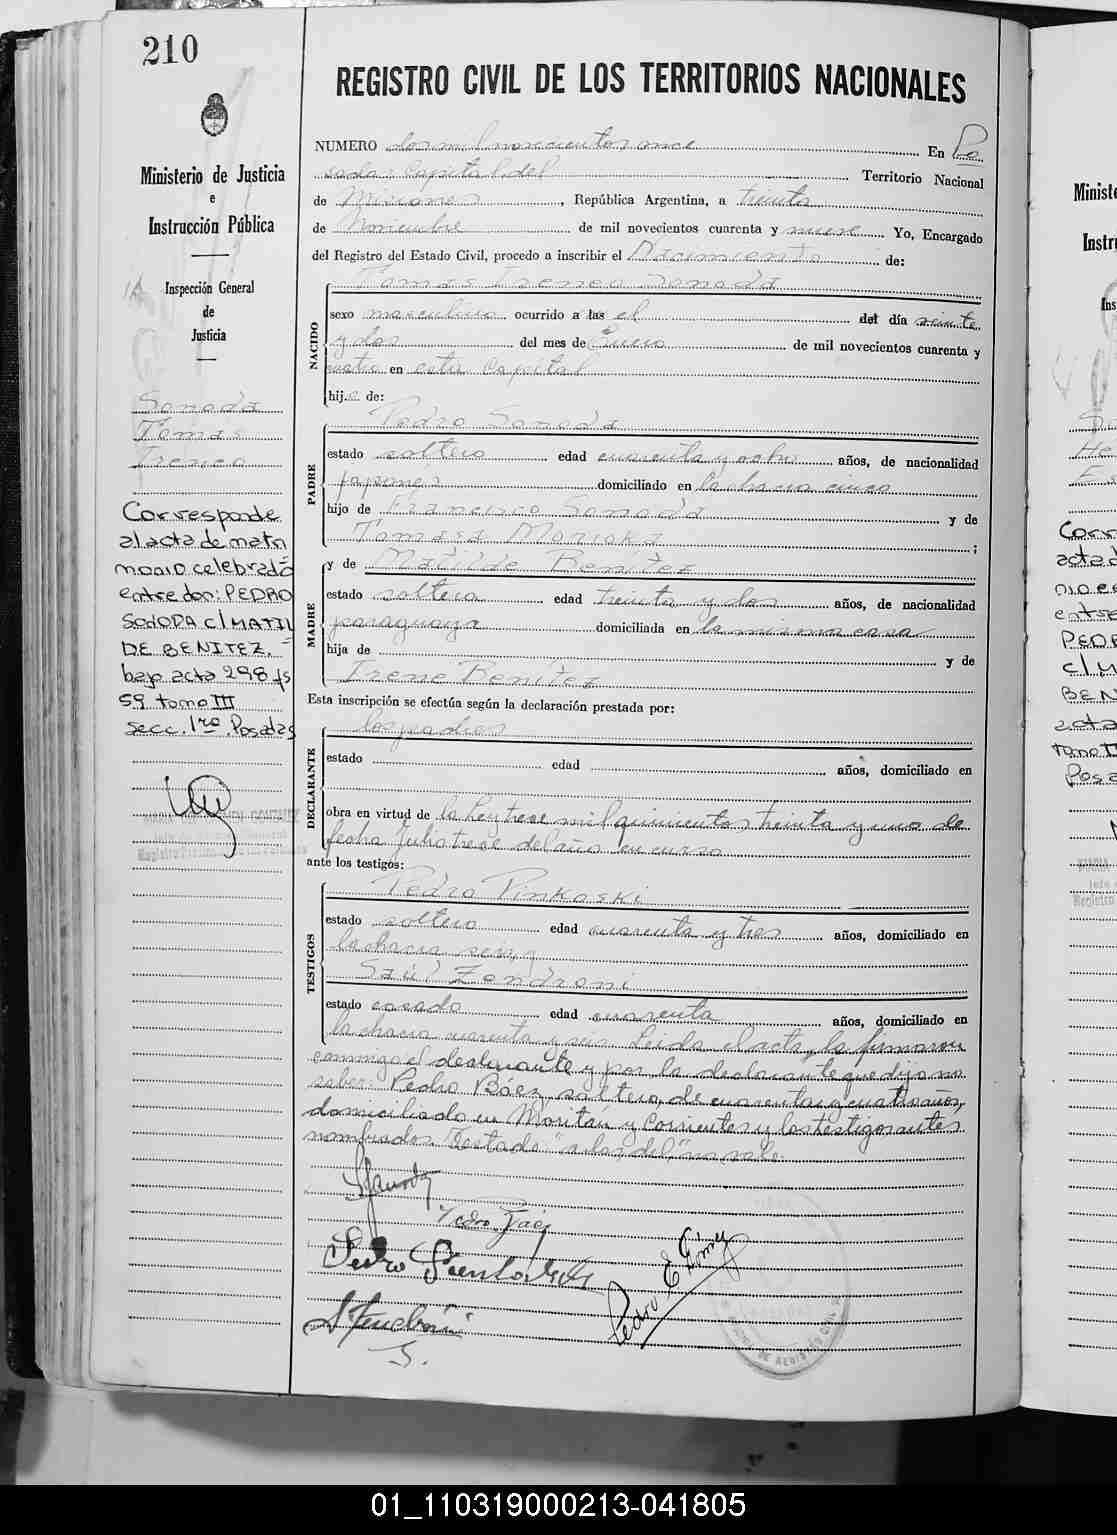 210
REGISTRO CIVIL DE LOS TERRITORIOS NACIONALES
Ministerio de Justicia
e
Instrucción Pública
Inspección General
de
Justicia
Sonoda
Tomas
Ireneo
Corresponde
al acta de matri
monio celebrado
entre don: PEDRO
SONODA c/ MATIL
DE BENITEZ.
bajo acta 298 fs
59 tomo III
secc. 1ra. Posadas
NUMERO dos mil novecientos once En Po
sadas Capital del Territorio Nacional
de Misiones, República Argentina, a treinta
de Noviembre de mil novecientos cuarenta y nueve Yo, Encargado
del Registro del Estado Civil, procedo a inscribir el Nacimiento de:
NACIDO
Tomas Ireneo Sonoda
sexo masculino ocurrido a las el del día veinte
y dos del mes de Enero de mil novecientos cuarenta y
cuatro en esta Capital
hijo de:
PADRE
Pedro Sonoda
estado soltero edad cuarenta y ocho años, de nacionalidad
japonés domiciliado en la chacra cinco
hijo de Francisco Sonoda y de
Tomasa Morioka ;
MADRE
y de Matilde Benitez
estado soltera edad treinta y dos años, de nacionalidad
paraguaya domiciliada en la misma casa
hija de y de
Irene Benitez
Esta inscripción se efectúa según la declaración prestada por:
DECLARANTE
los padres
estado edad años, domiciliado en
obra en virtud de la Ley trece mil quinientos treinta y uno de
fecha Julio trece del año en curso
ante los testigos:
TESTIGOS
Pedro Pinkoski
estado soltero edad cuarenta y tres años, domiciliado en
la chacra seis y
Saúl Zendroni
estado casado edad cuarenta años, domiciliado en
la chacra cuarenta y seis. Leida el acta, la firmaron
conmigo el declarante y por la declarante que dijo no
saber: Pedro Báez, soltero, de cuarenta y cuatro años,
domiciliado en Moritán y Corrientes y los testigos antes
nombrados. Testado "a las, del", no vale.
Pedro Báez
Pedro E Gómez
01_110319000213-041805